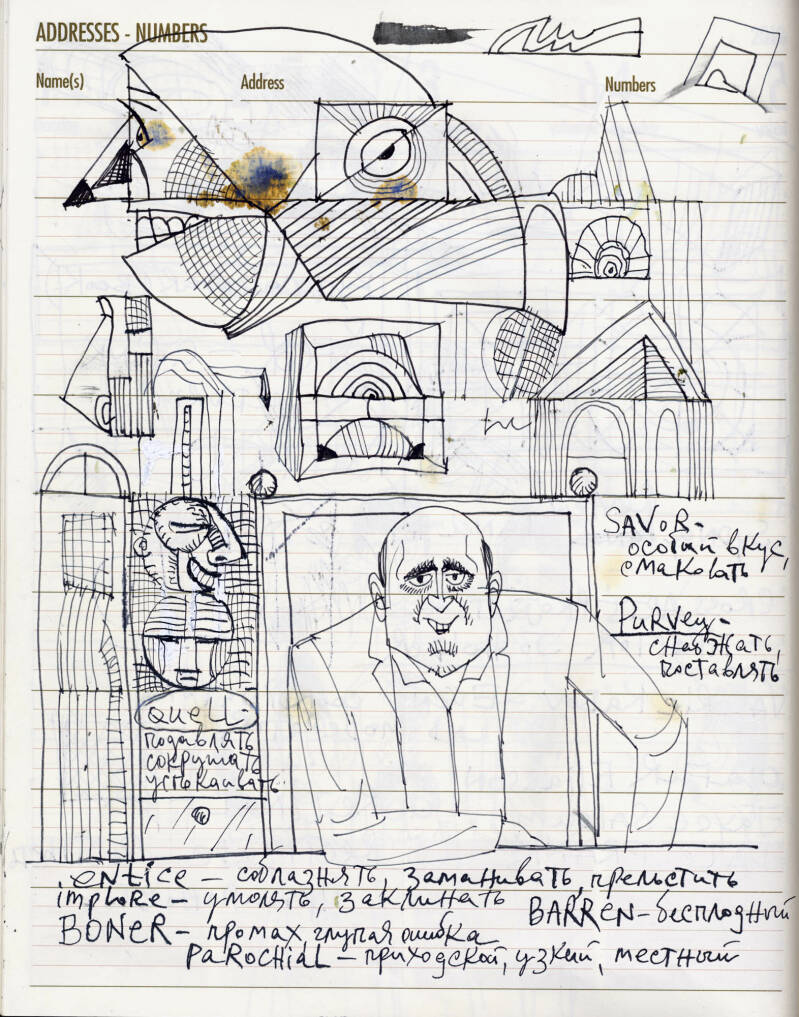 ADDRESSES - NUMBERS
Name(s) Address Numbers
SAVOR -
особый вкус,
смаковать
PURVEY -
снабжать,
поставлять
QUELL -
подавлять
сокрушать
успокаивать
ENTICE — соблазнять, заманивать, прельстить
IMPLORE — умолять, заклинать
BARREN - бесплодный
BONER - промах глупая ошибка
PAROCHIAL — приходской, узкий, местный